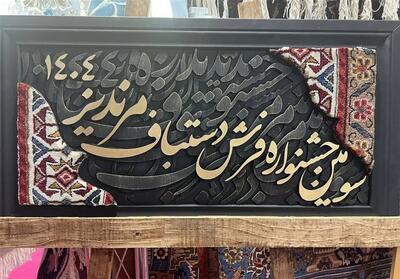 سومین جشنواره فرش دستباف مرند یز
۱۴۰۴